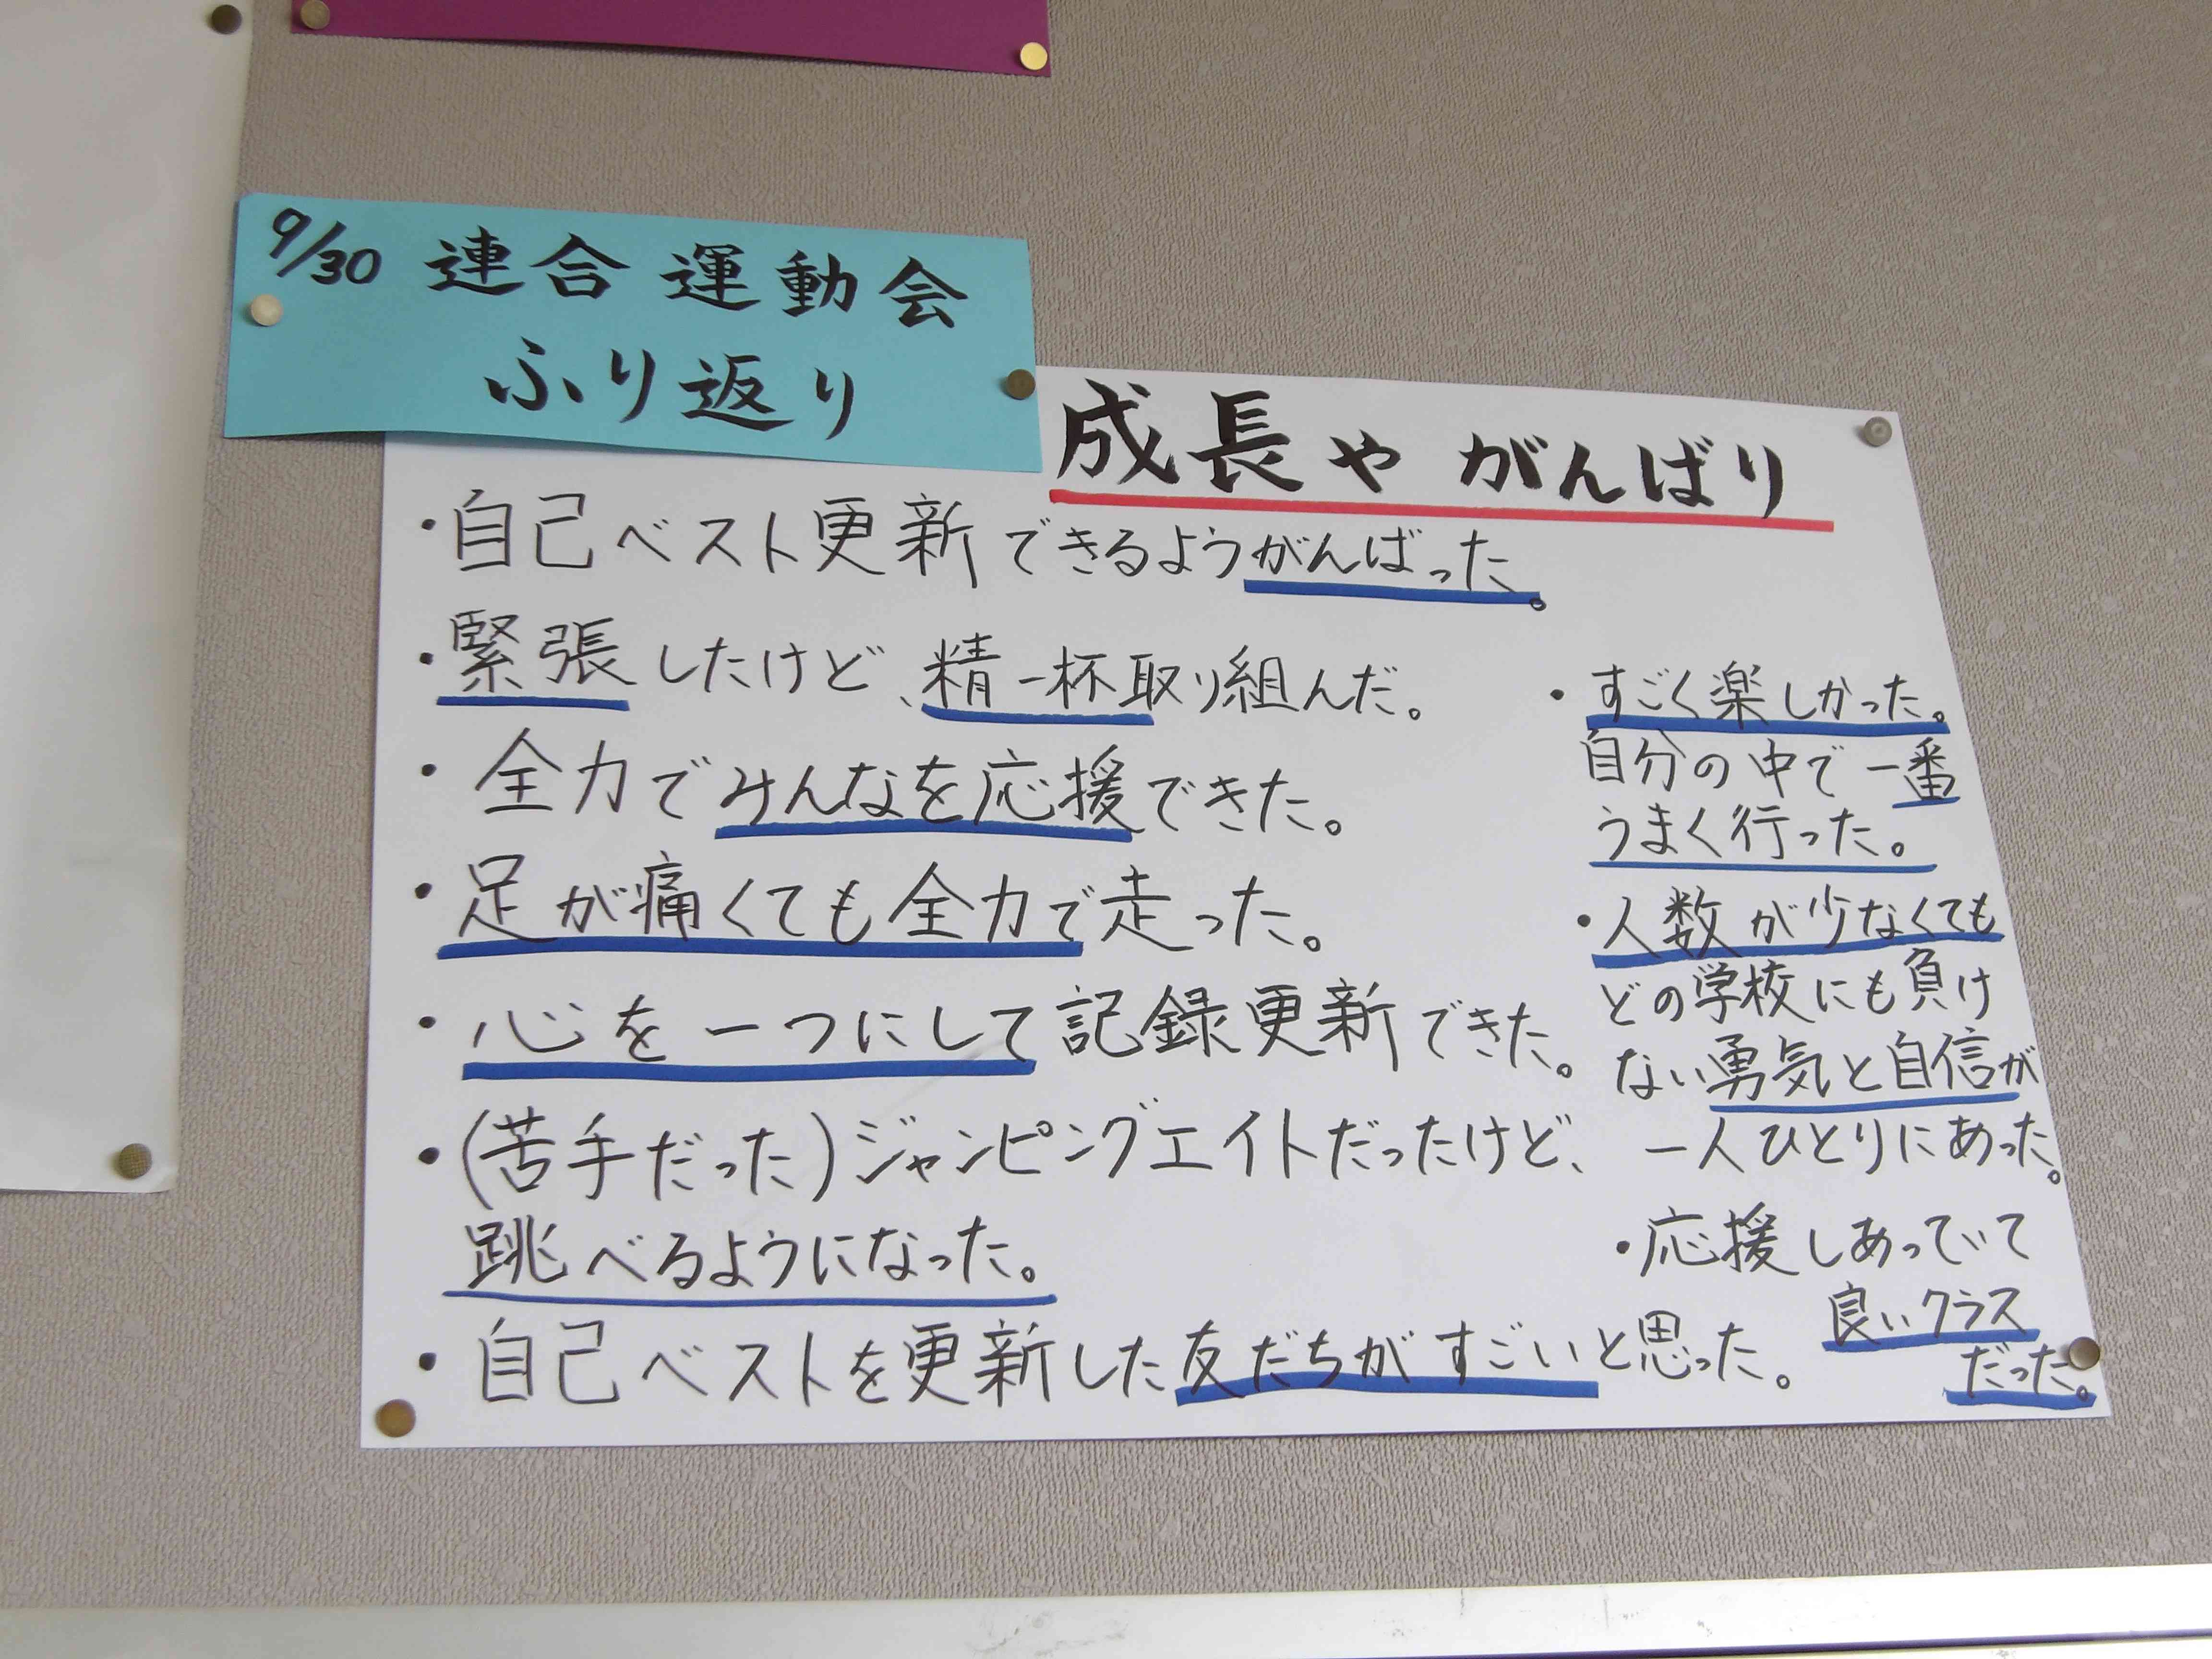 9/30 連合運動会
ふり返り
成長やがんばり
・自己ベスト更新できるようがんばった。
・緊張したけど、精一杯取り組んだ。
・全力でみんなを応援できた。
・足が痛くても全力で走った。
・心を一つにして記録更新できた。
・(苦手だった)ジャンピングエイトだったけど、
跳べるようになった。
・自己ベストを更新した友だちがすごいと思った。
・すごく楽しかった。
自分の中で一番
うまく行った。
・人数が少なくても
どの学校にも負け
ない勇気と自信が
一人ひとりにあった。
・応援しあっていて
良いクラス
だった。